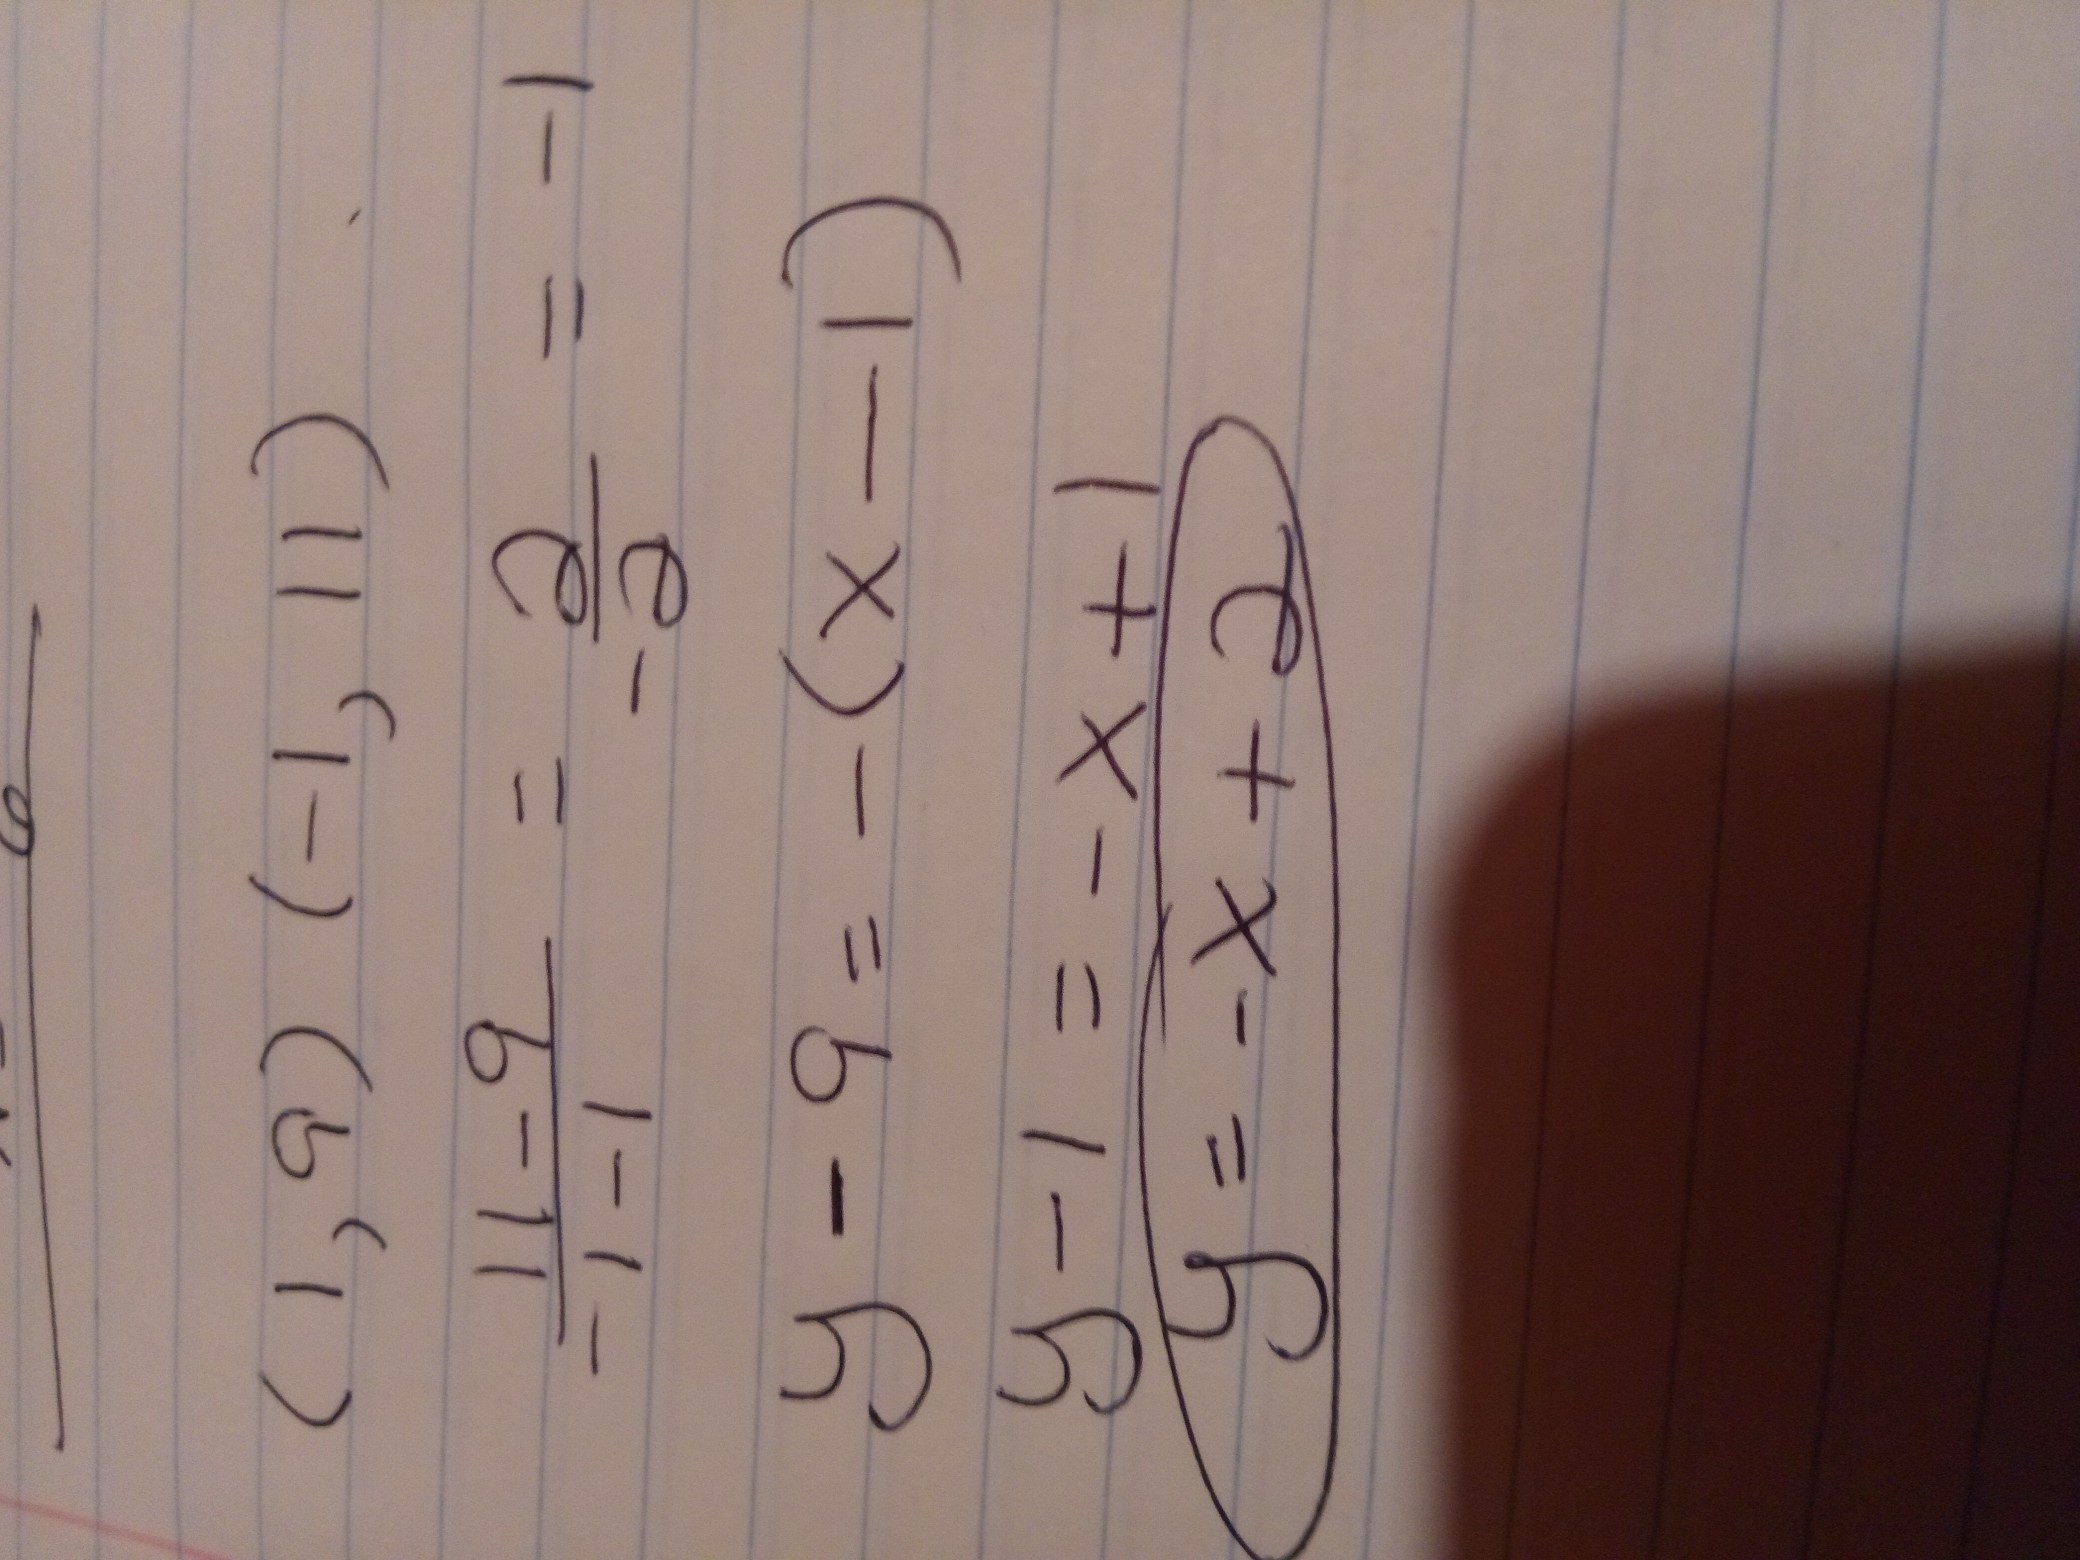 (1, 9) (-1, 11)
11-9/-1-1 = 2/-2 = -1
y - 9 = -(x - 1)
y - 1 = -x + 1
y = -x + 2